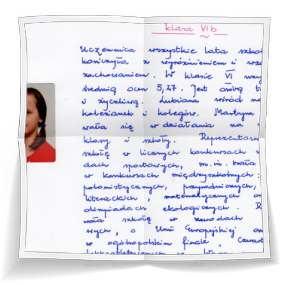 klasa VI b
Uczennica wszystkie lata szkol
kończyła z wyróżnieniem i wzo
zachowaniem. W klasie VI uzy
średnią ocen 5,27. Jest osobą t
i życzliwą. Lubiana wśród
koleżanek i kolegów. Martyna
wała się w działania na
klasy i szkoły. Reprezentow
szkołę w licznych konkursach
dach sportowych, m. in. brała
w konkursach międzyszkolnych:
polonistycznych, przyrodniczych,
literackich, matematycznych or
olimpiadach ekologicznych. R
wała szkołę w zawodach
wych, o Unii Europejskiej or
w ogólnopolskim finale,